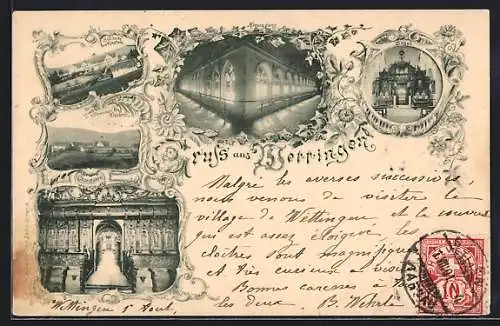 Kreuzgang
Gruss aus Wettingen
Malgré les averses successives,
nous venons de visiter le
village de Wettingen et le couvent
qui est assez éloigné, les
cloîtres sont magnifiques
et très curieux a
Bonnes caresses à
les deux. B. Wehrli
Wettingen 5 Août,
10